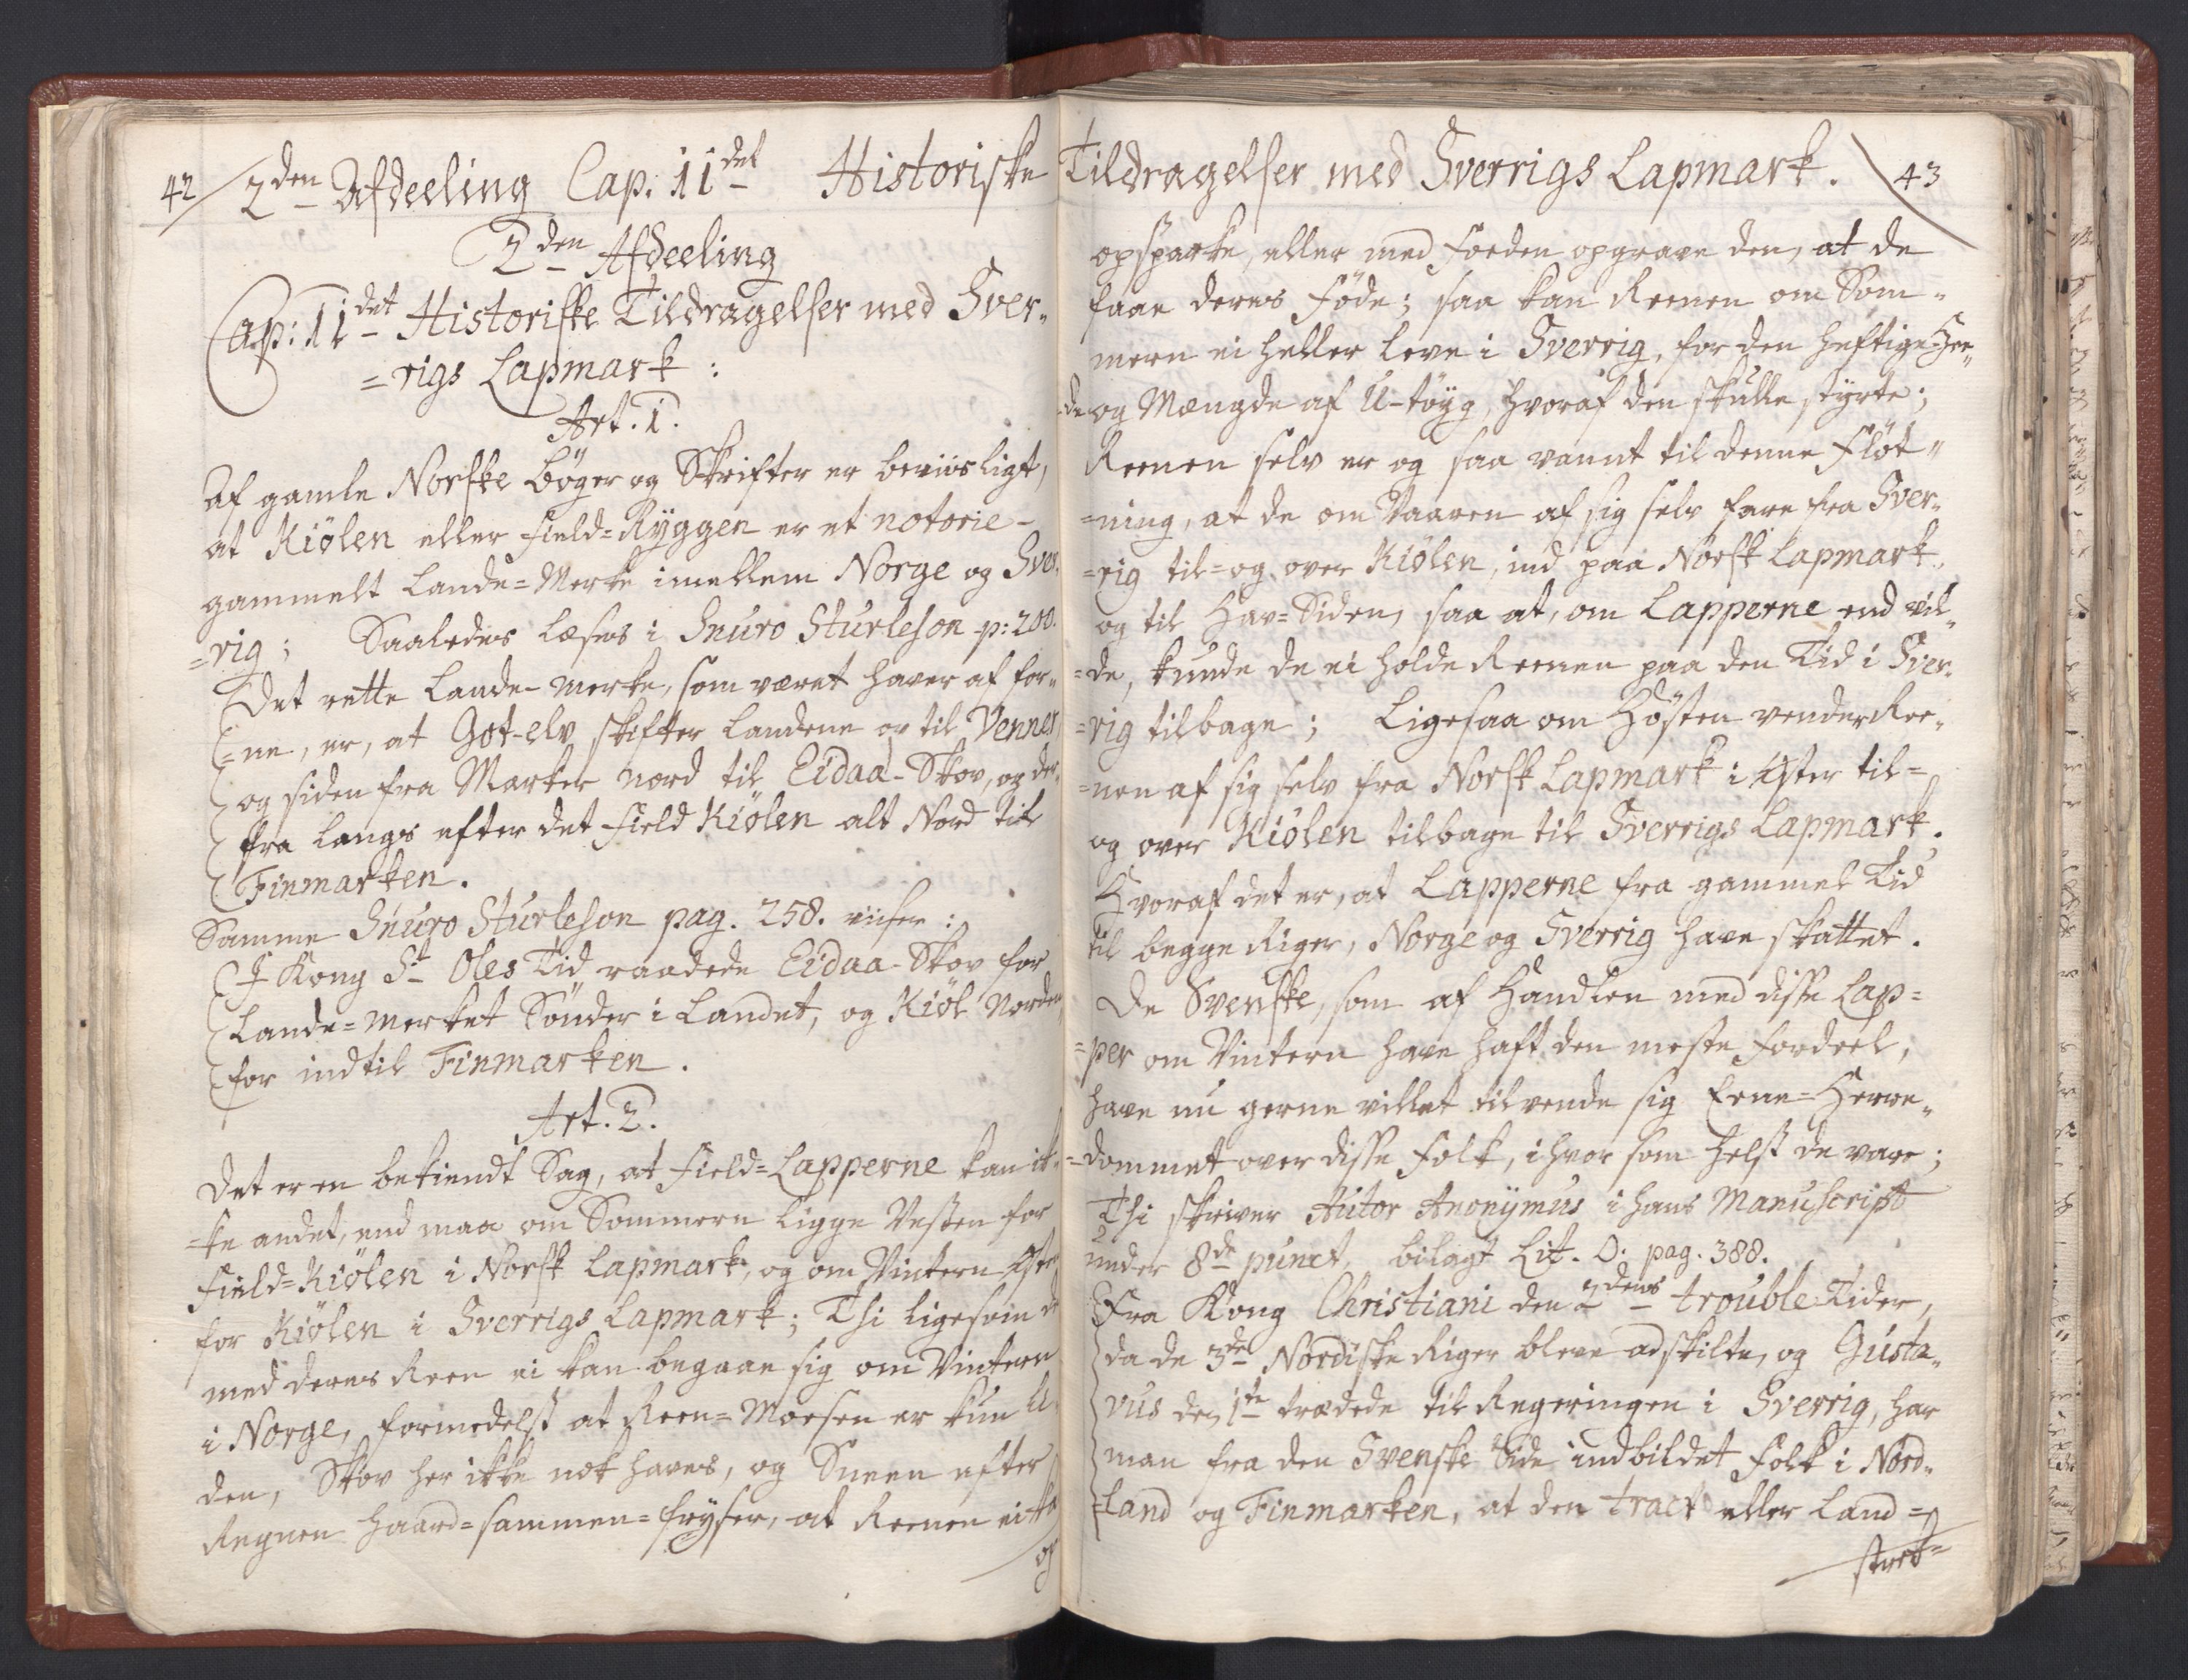 42 2den Afdeeling Cap: 11det Historiske
2den Afdeeling
Cap: 11det Historiske Tildragelser med Sver„
=rigs Lapmark:
Art. 1.
Af gamle Norske Bøger og Skrifter er beviisligt,
at Kiölen eller Field=Ryggen er et notorie-
gammelt Lande=Merke imellem Norge og Sver„
=rig; Saaledes læses i Snuro Sturleson p: 200.
Det rette Lande-Merke, som været haver af for„
=ne, er, at Got-elv skifter Landene op til Venner
og siden fra Marker nord til Eidaa-Skov, og der„
fra langs efter det Field Kiölen alt Nord til
Finmarken.
Samme Snuro Sturleson pag. 258. viiser:
I Kong St Oles Tid raadede Eidaa-Skov for
Lande=Merket Sönder i Landet, og Kiöl Norden
for indtil Finmarken.
Art. 2.
Det er en bekiendt Sag, at Field=Lapperne kan ik„
=ke andet, end maa om Sommeren ligge Vesten for
Field=Kiölen i Norsk Lapmark, og om Vinteren Østen
for Kiölen i Sverrigs Lapmark; Thi ligesom de
med deres Reen ei kan begaae sig om Vinteren
i Norge, formedelst at Reen=Moesen er kun li„
den, Skov her ikke nok haves, og Sneen efter
Regnen haard=sammen=fryser, at Reenen ei kan
op
Tildragelser med Sverrigs Lapmark. 43
opsparke, eller med Foeden opgrave den, at de
faae deres Föde; saa kan Reenen om Som„
meren ei heller leve i Sverrig, for den heftige Hee„
=de og Mængde af U-töyg, hvoraf den skulle styrte;
Reenen selv er og saa vannt til denne Flöt„
=ning, at de om Vaaren af sig selv fare fra Sver„
=rig til= og over Kiölen, ind paa Norsk Lapmark,
og til Hav=Siden, saa at, om Lapperne end vil„
=de, kunde de ei holde Reenen paa den Tid i Sver„
=rig tilbage; Ligesaa om Hösten vender Ree„
=nen af sig selv fra Norsk Lapmark i Øster til=
og over Kiölen tilbage til Sverrigs Lapmark.
Hvoraf det er, at Lapperne fra gammel Tid
til begge Riger, Norge og Sverrig have skattet.
De Svenske, som af Handlen med disse Lap=
=per om Vinteren have haft den meste Fordeel,
have nu gerne villet tilvende sig Eene=Herre„
=dommet over disse Folk, ihvor som helst de vare;
Thi skriver Autor Anonymus i hans Manuscript
under 8de punct, bilagt Lit. O. pag. 388.
Fra Kong Christiani den 2dens trouble Tider,
da de 3de Nordiske Riger bleve adskilte, og Gusta„
vus den 1ste trædede til Regieringen i Sverrig, har
man fra den Svenske Side indbildet Folk i Nord„
=land og Finmarken, at den tract eller Land=
stræk=